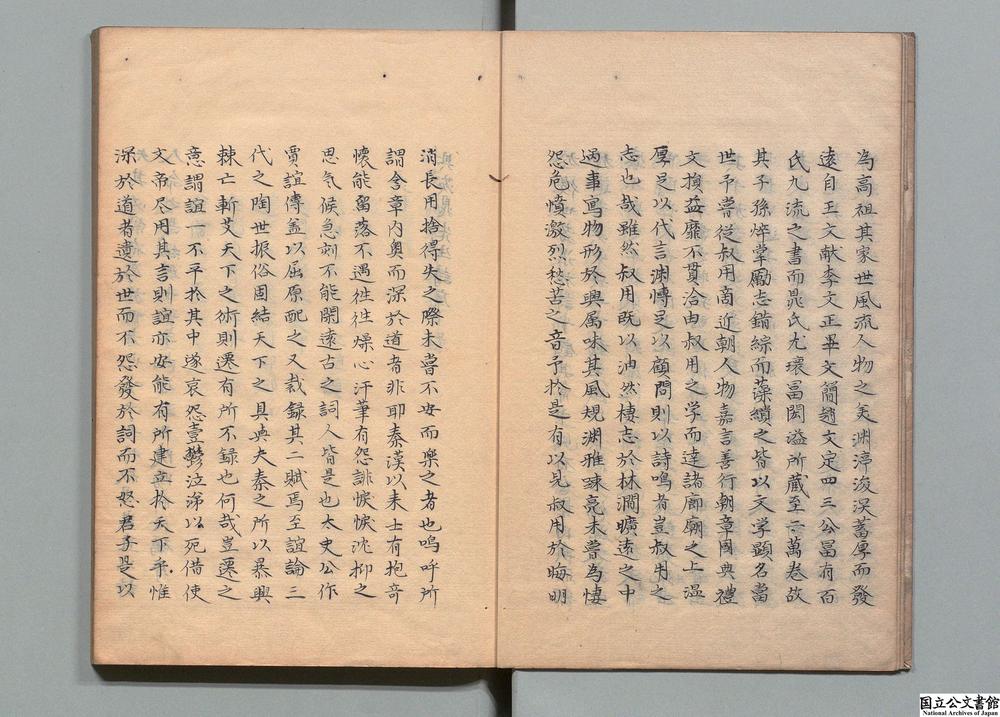 為高祖其家世風流人物之美渊渟浚深蓄厚而發
遠自王文献李文正畢文簡趙文定四三公冨有百
氏九流之書而晁氏尤瓌冨閎溢所蔵至二萬卷故
其子孫焠掌勵志錯綜而藻繢之皆以文学顕名當
世予嘗従叔用商近朝人物嘉言善行朝章國典禮
文損益靡不貫洽由叔用之学而達諸廊廟之上温
厚足以代言渊愽足以顧問則以詩鳴者豈叔用之
志也哉雖然叔用既以油然棲志於林澗曠遠之中
遇事寫物形於興属味其風規渊雅踈亮未嘗為悽
怨危憤激烈愁苦之音予於是有以見叔用於晦明
消長用捨得失之際未嘗不安而樂之者也嗚呼所
謂含章内奥而深於道者非耶秦漢以来士有抱竒
懐能留落不遇徃徃燥心汗筆有怨誹悞悞沈抑之
思气候急刻不能閑遠古之詞人皆是也太史公作
賈誼傳盖以屈原配之又裁録其二賦焉至誼論三
代之陶世振俗固結天下之具與夫秦之所以暴興
棘亡斬艾天下之術則遷有所不録也何哉豈遷之
意謂誼一不平於其中遂哀怨壹鬱泣涕以死借使
文帝尽用其言則誼亦安能有所建立於天下乎惟
深於道者遺於世而不怨發於詞而不怒君子是以
国立公文書館
National Archives of Japan